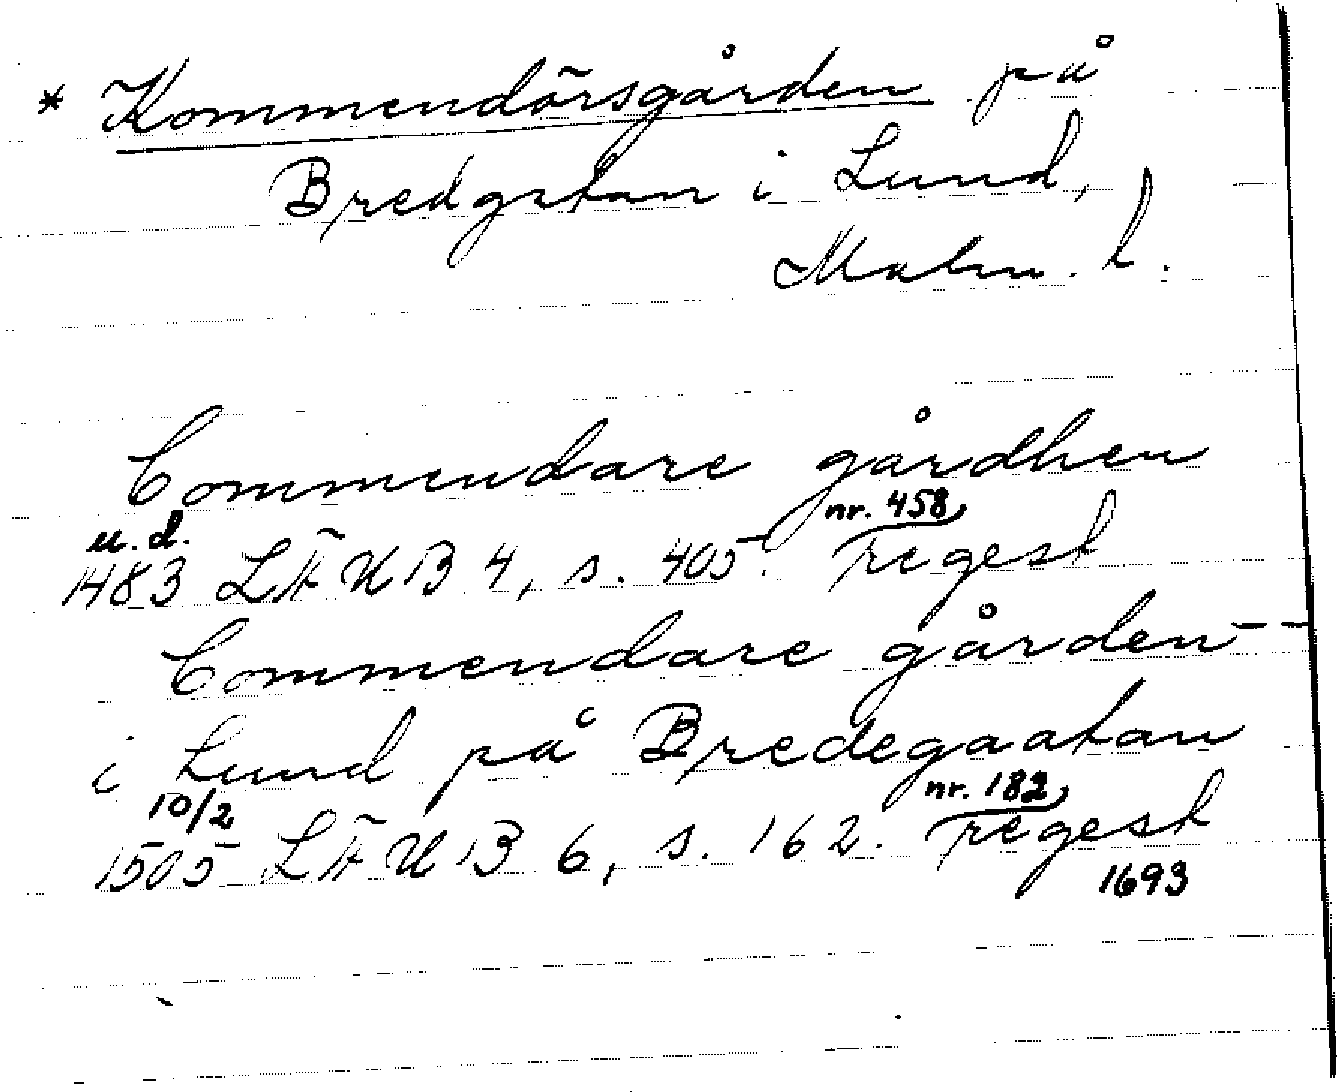 * Kommendörsgården på
Bredgatan i Lund,
Malm. l.
Commendare gårdhen
u. d. nr. 458
1483 LÄUB 4, s. 405. regest
Commendare gården --
i Lund på Bredegaatan
10/2 nr. 182
1505 LÄUB 6, s. 162. regest
1693